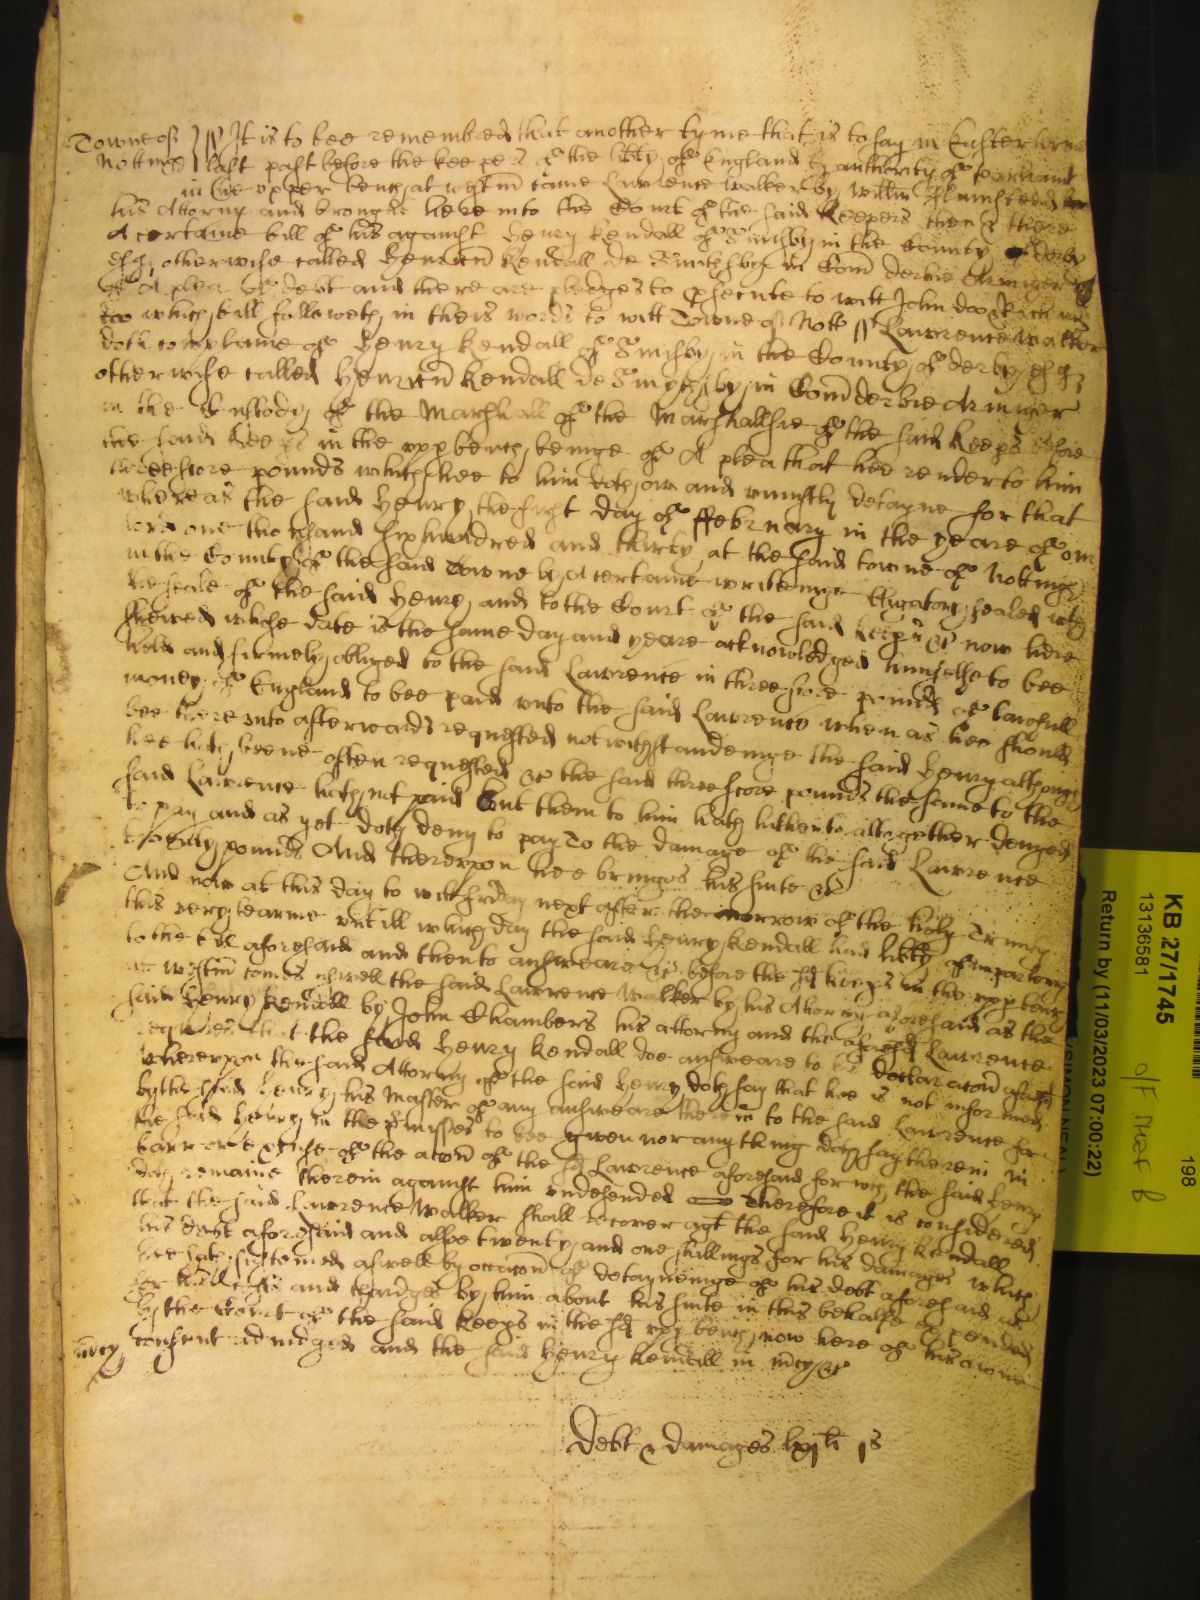 Towne of Nottingh } // It is to bee remembred that another tyme that is to say in Easter terme
last past before the keepers of the libty of England by authority of parliamt
in the upper bench at westm̄ came Lawrence Walker by Willm Plumsteed
his Attorny and brought here into the Court of the said keepers then & there
A certaine bill of his against Henry Kendall of Smisby in the County of derby
esq otherwise called Henricū Kendall de Smithsby in Com̄ derbie Armiger
of A plea of debt and there are pledges to psecute to witt John doo Rich
roo which bill followeth in theis words to witt Towne of Nott // Lawrence Walker
doth complaine of Henry Kendall of Smisby in the County of derby esq
otherwise called Henricū Kendall de Smythsby in Com̄ derbie Armiger
in the Custody of the Marshall of the Marshallsie of the said keeps before
the said keeps in the upp bench beinge of A plea that hee render to him
threescore pounds which hee to him doth owe and uniustly detayne for that
whereas the said Henry the first day of ffebruary in the yeare of our
lord one thousand six hundred and thirty at the said towne of Nottingh
in the County of the said Towne by A certaine writeinge obligatory sealed with
the seale of the said Henry and to the Court of the said keeprs &c now here
shewed whose date is the same day and yeare acknowledged himselfe to bee
held and firmely obliged to the said Lawrence in threescore pounds of lawfull
money of England to bee paid unto the said Lawrence when as hee should
bee thereunto afterwards requested notwithstandeinge the said Henry although
hee hath beene often requested &c the said threescore pounds the same to the
said Lawrence hath not paid but them to him hath hitherto altogether denyed
to pay and as yet doth deny to pay To the damage of the said Lawrence
twenty pounds And thereupon hee bringes his suite &c
And now at this day to witt fryday next after the morrow of the holy Trinity
this very tearme untill which day the said Henry Kendall had libty of imparlong
to the bill aforesaid and then to answeare &c before the sd keeps in the upp bench
at westm̄ comes aswell the said Lawrence Walker by his Attorny aforesaid as the
said Henry Kendall by John Chambers his attorny and the aforesd Lawrence
requires that the said Henry Kendall doe answeare to his declaracon̄ aforesd
whereupon the said Attorny of the said Henry doth say that hee is not informed
by the said Henry his Master of any answeare therein to the said Lawrence for
the said Henry in the pmisses to bee given nor any thing doth say therein in
barr or excuse of the accon̄ of the sd Lawrence aforesaid for wch the said Henry
doth remaine therein against him undefended Therefore it is considered
that the said Lawrence Walker shall recover agt the said Henry Kendall
his debt aforesaid and alsoe twenty and one shillings for his damages which
hee hath susteined aswell by occacon̄ of detayneinge of his debt aforesaid as
for his costs and chardges by him about his suite in this behalfe expended
by the Court of the said keeps in the sd upp bench now here of his owne
m̄cy consent adiudged and the said Henry Kendall in m̄cy &c
Debt & damages lxjli js
KB 27/1745
13136581
198
Return by (11/03/2023 07:00:22)